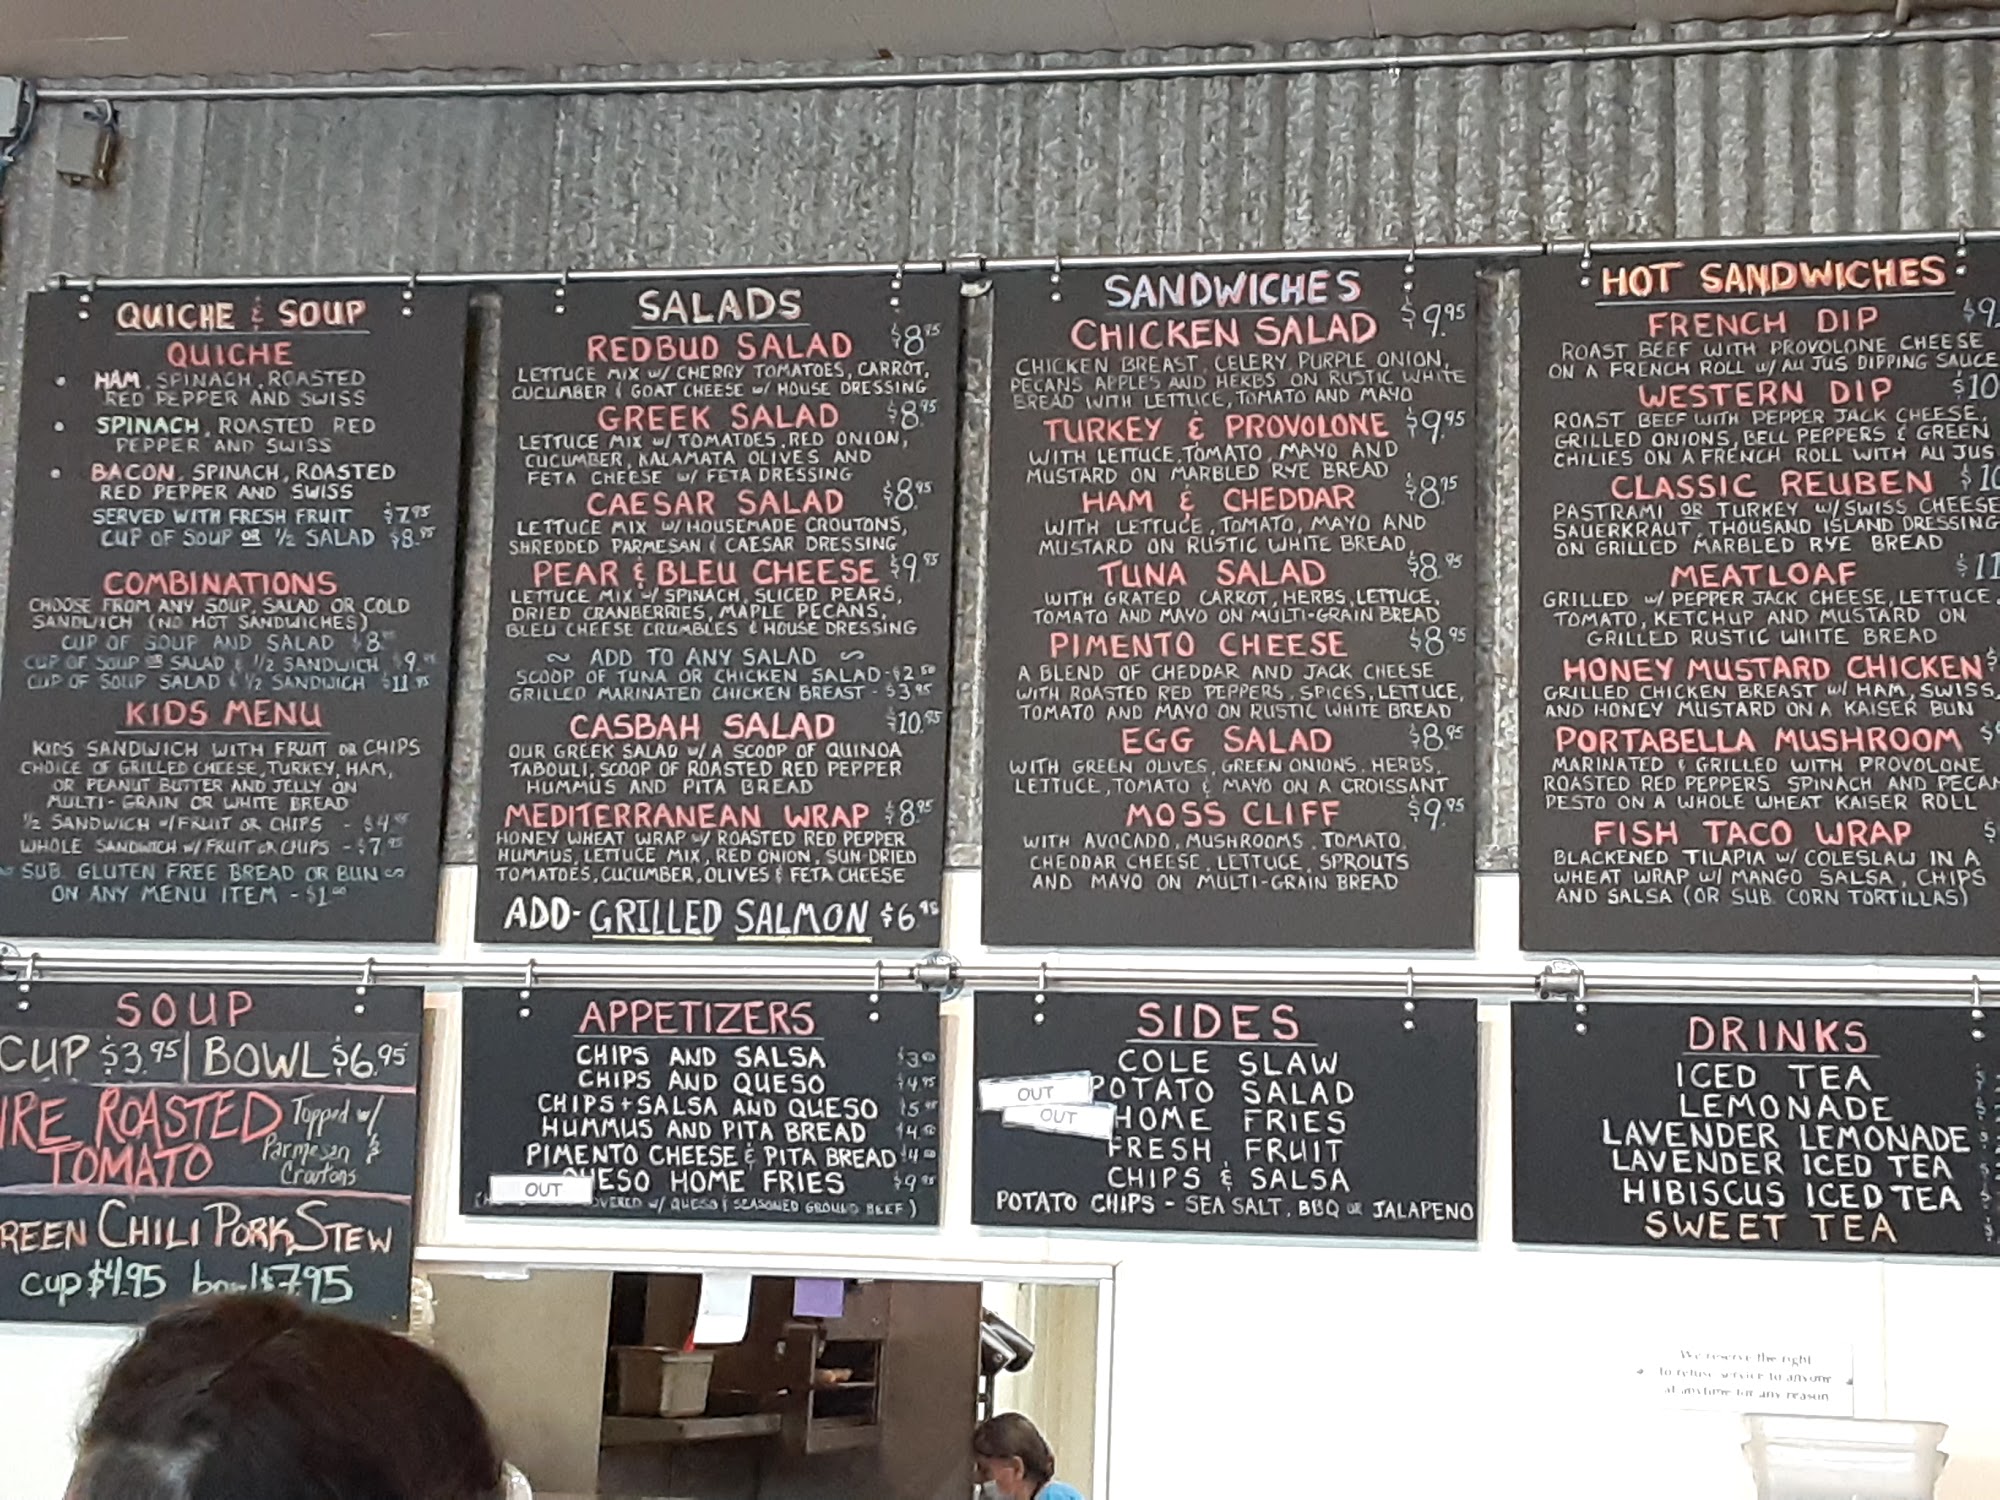 QUICHE & SOUP
QUICHE
• HAM, SPINACH, ROASTED
RED PEPPER AND SWISS
• SPINACH, ROASTED RED
PEPPER AND SWISS
• BACON, SPINACH, ROASTED
RED PEPPER AND SWISS
SERVED WITH FRESH FRUIT $7.95
CUP OF SOUP OR 1/2 SALAD $8.95
COMBINATIONS
CHOOSE FROM ANY SOUP, SALAD OR COLD
SANDWICH (NO HOT SANDWICHES)
CUP OF SOUP AND SALAD $8.
CUP OF SOUP OR SALAD & 1/2 SANDWICH $9.
CUP OF SOUP SALAD & 1/2 SANDWICH $11.95
KIDS MENU
KIDS SANDWICH WITH FRUIT OR CHIPS
CHOICE OF GRILLED CHEESE, TURKEY, HAM,
OR PEANUT BUTTER AND JELLY ON
MULTI-GRAIN OR WHITE BREAD
1/2 SANDWICH W/FRUIT OR CHIPS - $4.95
WHOLE SANDWICH W/ FRUIT OR CHIPS - $7.95
~ SUB. GLUTEN FREE BREAD OR BUN ~
ON ANY MENU ITEM - $1.00
SALADS
REDBUD SALAD $8.95
LETTUCE MIX W/ CHERRY TOMATOES, CARROT,
CUCUMBER & GOAT CHEESE W/ HOUSE DRESSING
GREEK SALAD $8.95
LETTUCE MIX W/ TOMATOES, RED ONION,
CUCUMBER, KALAMATA OLIVES AND
FETA CHEESE W/ FETA DRESSING
CAESAR SALAD $8.95
LETTUCE MIX W/ HOUSEMADE CROUTONS,
SHREDDED PARMESAN & CAESAR DRESSING
PEAR & BLEU CHEESE $9.95
LETTUCE MIX W/ SPINACH, SLICED PEARS,
DRIED CRANBERRIES, MAPLE PECANS,
BLEU CHEESE CRUMBLES & HOUSE DRESSING
~ ADD TO ANY SALAD ~
SCOOP OF TUNA OR CHICKEN SALAD - $2.50
GRILLED MARINATED CHICKEN BREAST - $3.95
CASBAH SALAD $10.95
OUR GREEK SALAD W/ A SCOOP OF QUINOA
TABOULI, SCOOP OF ROASTED RED PEPPER
HUMMUS AND PITA BREAD
MEDITERRANEAN WRAP $8.95
HONEY WHEAT WRAP W/ ROASTED RED PEPPER
HUMMUS, LETTUCE MIX, RED ONION, SUN-DRIED
TOMATOES, CUCUMBER, OLIVES & FETA CHEESE
ADD- GRILLED SALMON $6.95
SANDWICHES
CHICKEN SALAD $9.95
CHICKEN BREAST, CELERY, PURPLE ONION,
PECANS, APPLES AND HERBS ON RUSTIC WHITE
BREAD WITH LETTUCE, TOMATO AND MAYO
TURKEY & PROVOLONE $9.95
WITH LETTUCE, TOMATO, MAYO AND
MUSTARD ON MARBLED RYE BREAD
HAM & CHEDDAR $8.95
WITH LETTUCE, TOMATO, MAYO AND
MUSTARD ON RUSTIC WHITE BREAD
TUNA SALAD $8.95
WITH GRATED CARROT, HERBS, LETTUCE,
TOMATO AND MAYO ON MULTI-GRAIN BREAD
PIMENTO CHEESE $8.95
A BLEND OF CHEDDAR AND JACK CHEESE
WITH ROASTED RED PEPPERS, SPICES, LETTUCE,
TOMATO AND MAYO ON RUSTIC WHITE BREAD
EGG SALAD $8.95
WITH GREEN OLIVES, GREEN ONIONS, HERBS,
LETTUCE, TOMATO & MAYO ON A CROISSANT
MOSS CLIFF $9.95
WITH AVOCADO, MUSHROOMS, TOMATO,
CHEDDAR CHEESE, LETTUCE, SPROUTS
AND MAYO ON MULTI-GRAIN BREAD
HOT SANDWICHES
FRENCH DIP $9.
ROAST BEEF WITH PROVOLONE CHEESE
ON A FRENCH ROLL W/ AU JUS DIPPING SAUCE
WESTERN DIP $10
ROAST BEEF WITH PEPPER JACK CHEESE,
GRILLED ONIONS, BELL PEPPERS & GREEN
CHILIES ON A FRENCH ROLL WITH AU JUS
CLASSIC REUBEN $10
PASTRAMI OR TURKEY W/ SWISS CHEESE
SAUERKRAUT, THOUSAND ISLAND DRESSING
ON GRILLED MARBLED RYE BREAD
MEATLOAF $11
GRILLED W/ PEPPER JACK CHEESE, LETTUCE,
TOMATO, KETCHUP AND MUSTARD ON
GRILLED RUSTIC WHITE BREAD
HONEY MUSTARD CHICKEN $
GRILLED CHICKEN BREAST W/ HAM, SWISS,
AND HONEY MUSTARD ON A KAISER BUN
PORTABELLA MUSHROOM $
MARINATED & GRILLED WITH PROVOLONE
ROASTED RED PEPPERS SPINACH AND PECAN
PESTO ON A WHOLE WHEAT KAISER ROLL
FISH TACO WRAP $
BLACKENED TILAPIA W/ COLESLAW IN A
WHEAT WRAP W/ MANGO SALSA, CHIPS
AND SALSA (OR SUB. CORN TORTILLAS)
SOUP
CUP $3.95 | BOWL $6.95
IRE ROASTED TOMATO
Topped w/
Parmesan &
Croutons
REEN CHILI PORK STEW
cup $4.95 bowl $7.95
APPETIZERS
CHIPS AND SALSA $3.50
CHIPS AND QUESO $4.95
CHIPS + SALSA AND QUESO $5.95
HUMMUS AND PITA BREAD $4.50
PIMENTO CHEESE & PITA BREAD $4.50
OUT UESO HOME FRIES $9.95
OVERED W/ QUESO & SEASONED GROUND BEEF)
SIDES
COLE SLAW
OUT POTATO SALAD
OUT HOME FRIES
FRESH FRUIT
CHIPS & SALSA
POTATO CHIPS - SEA SALT, BBQ OR JALAPENO
DRINKS
ICED TEA
LEMONADE
LAVENDER LEMONADE
LAVENDER ICED TEA
HIBISCUS ICED TEA
SWEET TEA
We reserve the right
to refuse service to anyone
at anytime for any reason